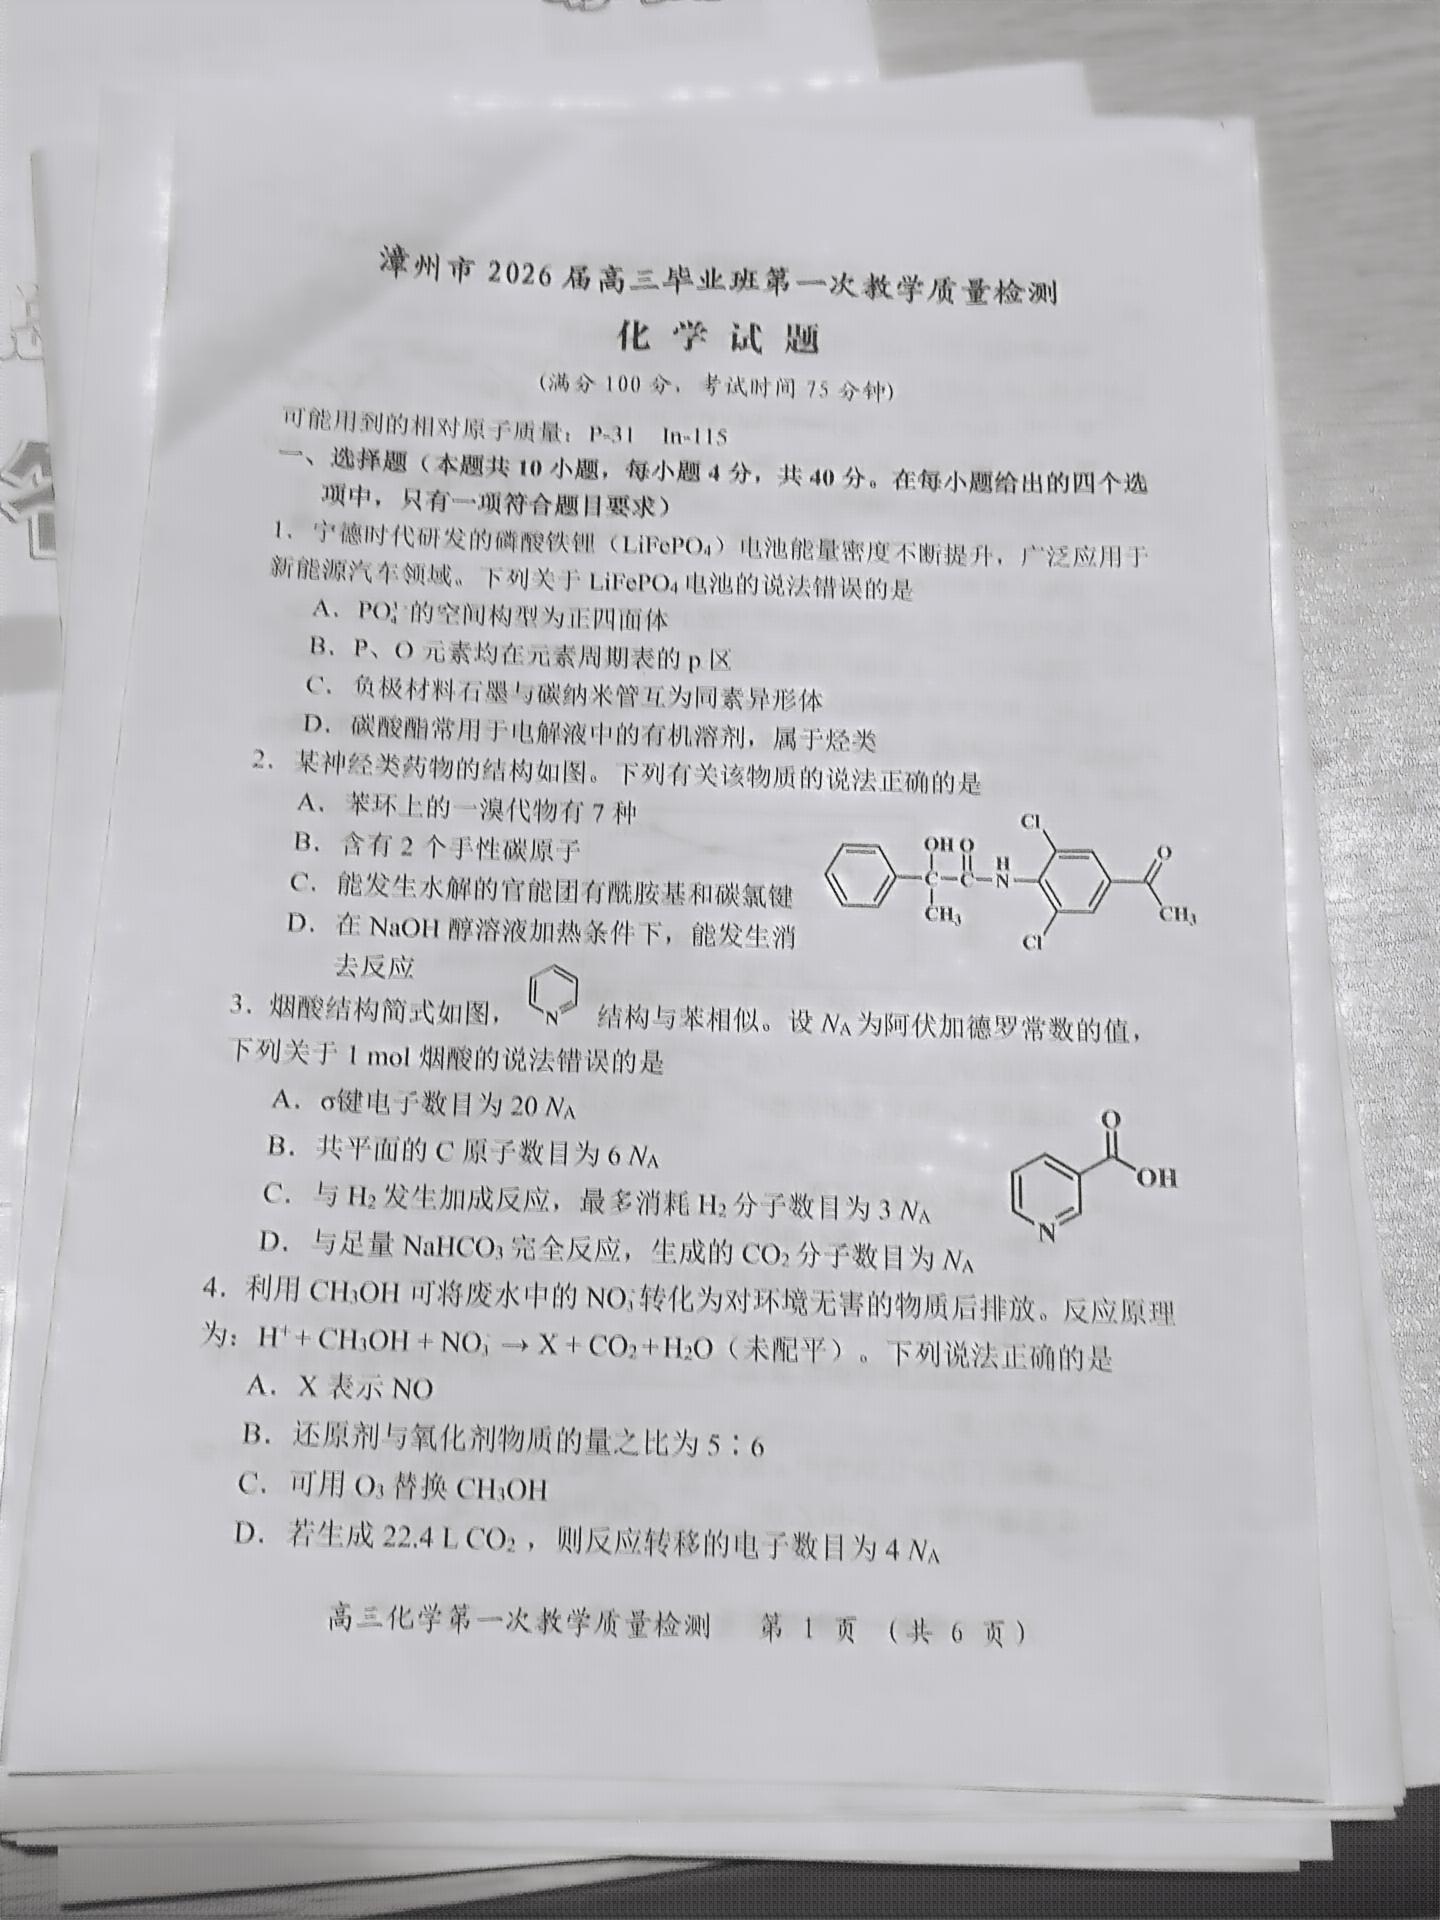 漳州市 2026 届高三毕业班第一次教学质量检测
化 学 试 题
(满分 100 分，考试时间 75 分钟)
可能用到的相对原子质量：P-31 In-115
一、选择题（本题共 10 小题，每小题 4 分，共 40 分。在每小题给出的四个选
项中，只有一项符合题目要求）
1．宁德时代研发的磷酸铁锂（LiFePO₄）电池能量密度不断提升，广泛应用于
新能源汽车领域。下列关于 LiFePO₄ 电池的说法错误的是
A．PO₄³⁻ 的空间构型为正四面体
B．P、O 元素均在元素周期表的 p 区
C．负极材料石墨与碳纳米管互为同素异形体
D．碳酸酯常用于电解液中的有机溶剂，属于烃类
2．某神经类药物的结构如图。下列有关该物质的说法正确的是
A．苯环上的一溴代物有 7 种
B．含有 2 个手性碳原子
C．能发生水解的官能团有酰胺基和碳氯键
D．在 NaOH 醇溶液加热条件下，能发生消
去反应
OH O
C C N H
CH₃
Cl
Cl
O
CH₃
3．烟酸结构简式如图， N 结构与苯相似。设 Nᴀ 为阿伏加德罗常数的值，
下列关于 1 mol 烟酸的说法错误的是
A．σ键电子数目为 20 Nᴀ
B．共平面的 C 原子数目为 6 Nᴀ
C．与 H₂ 发生加成反应，最多消耗 H₂ 分子数目为 3 Nᴀ
D．与足量 NaHCO₃ 完全反应，生成的 CO₂ 分子数目为 Nᴀ
O
OH
N
4．利用 CH₃OH 可将废水中的 NO₃⁻ 转化为对环境无害的物质后排放。反应原理
为：H⁺ + CH₃OH + NO₃⁻ → X + CO₂+H₂O（未配平）。下列说法正确的是
A．X 表示 NO
B．还原剂与氧化剂物质的量之比为 5∶6
C．可用 O₃ 替换 CH₃OH
D．若生成 22.4 L CO₂，则反应转移的电子数目为 4 Nᴀ
高三化学第一次教学质量检测 第 1 页 （共 6 页）